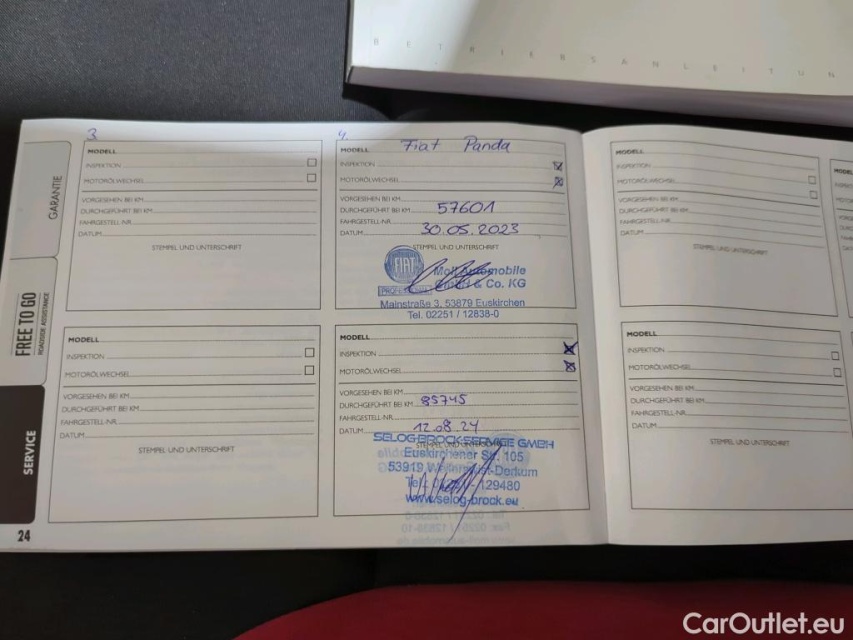 BETRIEBSANLEITUN
GARANTIE
FREE TO GO
ROADSIDE ASSISTANCE
SERVICE
24
3.
MODELL
INSPEKTION
MOTORÖLWECHSEL
VORGESEHEN BEI KM
DURCHGEFÜHRT BEI KM
FAHRGESTELL-NR.
DATUM
STEMPEL UND UNTERSCHRIFT
MODELL
INSPEKTION
MOTORÖLWECHSEL
VORGESEHEN BEI KM
DURCHGEFÜHRT BEI KM
FAHRGESTELL-NR.
DATUM
STEMPEL UND UNTERSCHRIFT
4.
MODELL Fiat Panda
INSPEKTION
MOTORÖLWECHSEL
VORGESEHEN BEI KM
DURCHGEFÜHRT BEI KM 57601
FAHRGESTELL-NR.
DATUM 30.05.2023
STEMPEL UND UNTERSCHRIFT
FIAT
Moll Automobile
GmbH & Co. KG
Mainstraße 3, 53879 Euskirchen
Tel. 02251 / 12838-0
MODELL
INSPEKTION
MOTORÖLWECHSEL
VORGESEHEN BEI KM
DURCHGEFÜHRT BEI KM 85745
FAHRGESTELL-NR.
DATUM 12.08.24
STEMPEL UND UNTERSCHRIFT
SELOG-BROCK-SERVICE GMBH
Euskirchener Str. 105
53919 Weilerswist-Derkum
Tel. 129480
www.selog-brock.eu
MODELL
INSPEKTION
MOTORÖLWECHSEL
VORGESEHEN BEI KM
DURCHGEFÜHRT BEI KM
FAHRGESTELL-NR.
DATUM
STEMPEL UND UNTERSCHRIFT
MODELL
INSPEKTION
MOTORÖLWECHSEL
VORGESEHEN BEI KM
DURCHGEFÜHRT BEI KM
FAHRGESTELL-NR.
DATUM
STEMPEL UND UNTERSCHRIFT
CarOutlet.eu